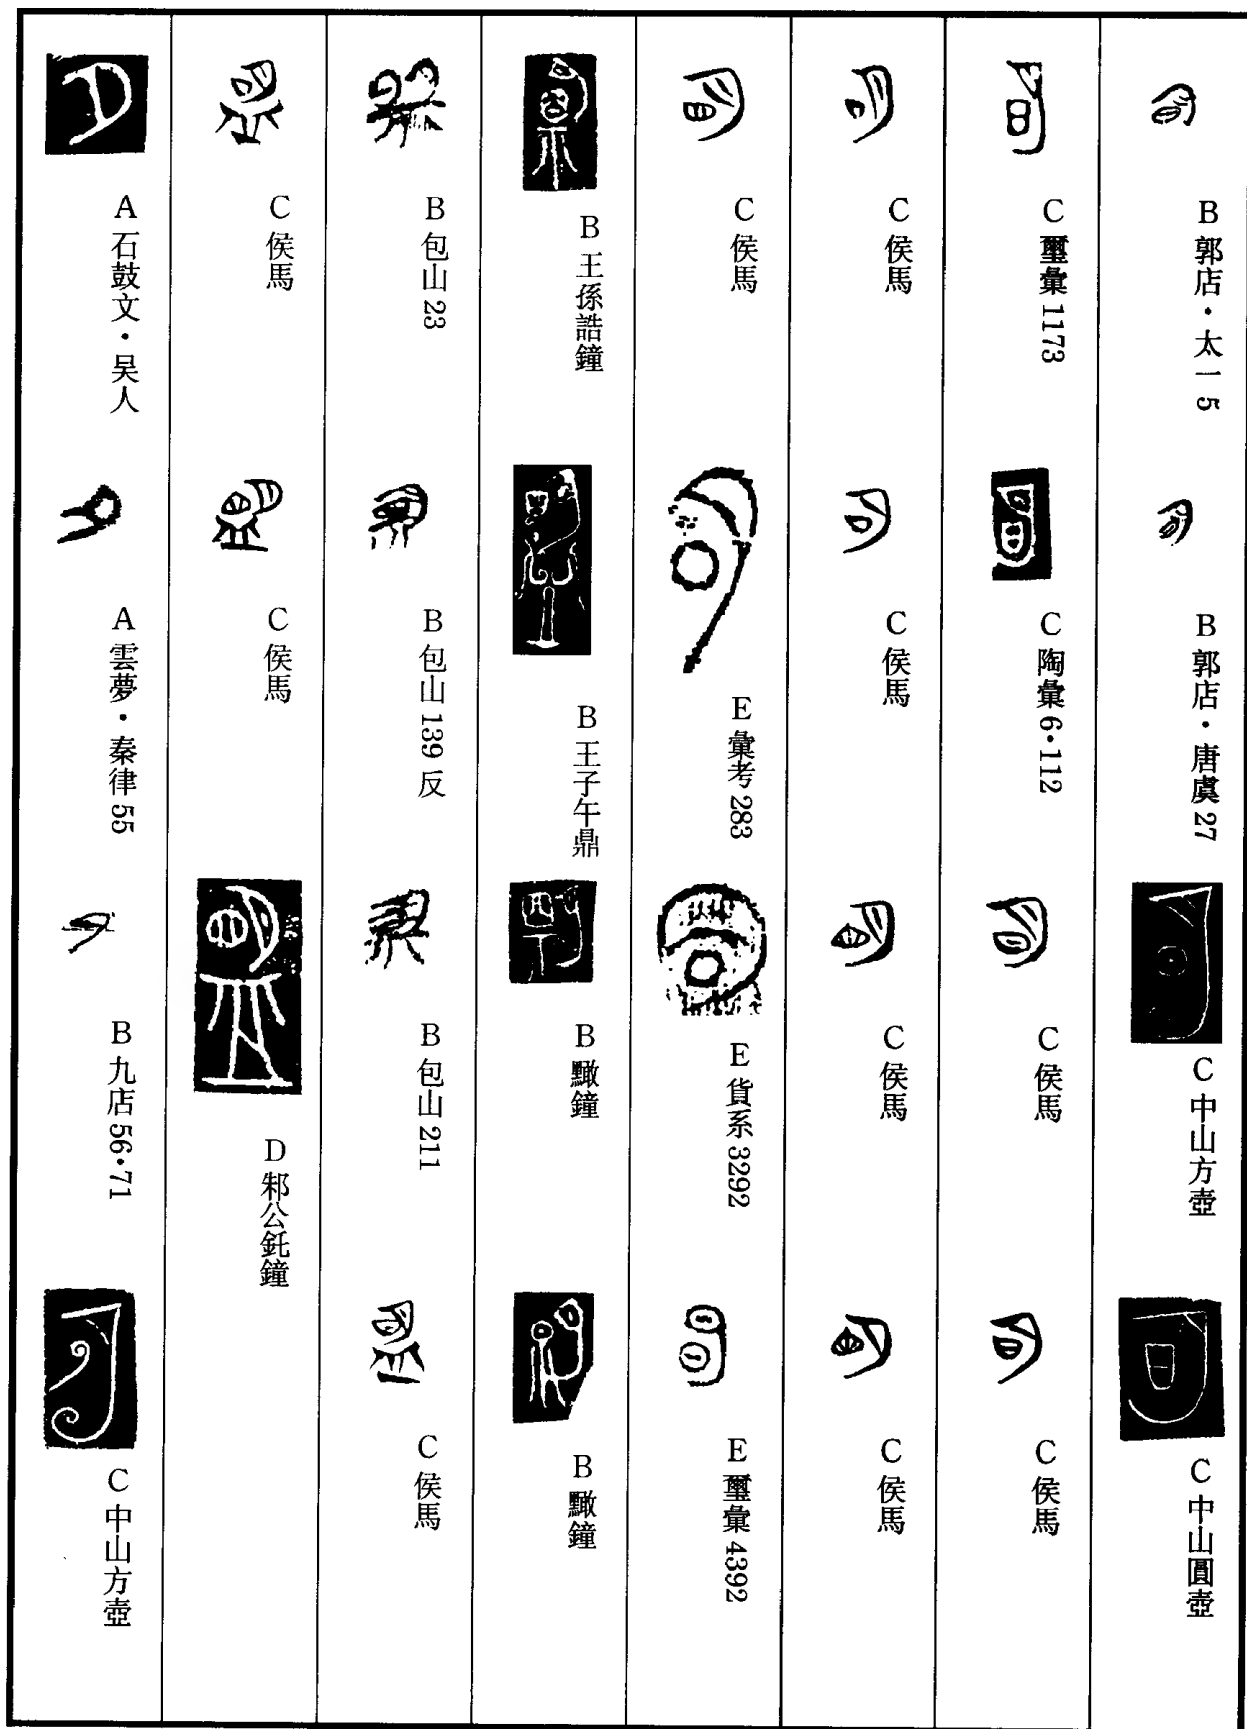 B 郭店·太一 5
B 郭店·唐虞 27
C 中山方壺
C 中山圓壺
C 璽彙 1173
C 陶彙 6·112
C 侯馬
C 侯馬
C 侯馬
C 侯馬
C 侯馬
C 侯馬
C 侯馬
E 彙考 283
E 貨系 3292
E 璽彙 4392
B 王孫誥鐘
B 王子午鼎
B 黭鐘
B 黭鐘
B 包山 23
B 包山 139 反
B 包山 211
C 侯馬
C 侯馬
C 侯馬
D 邾公釛鐘
A 石鼓文·吴人
A 雲夢·秦律 55
B 九店 56·71
C 中山方壺